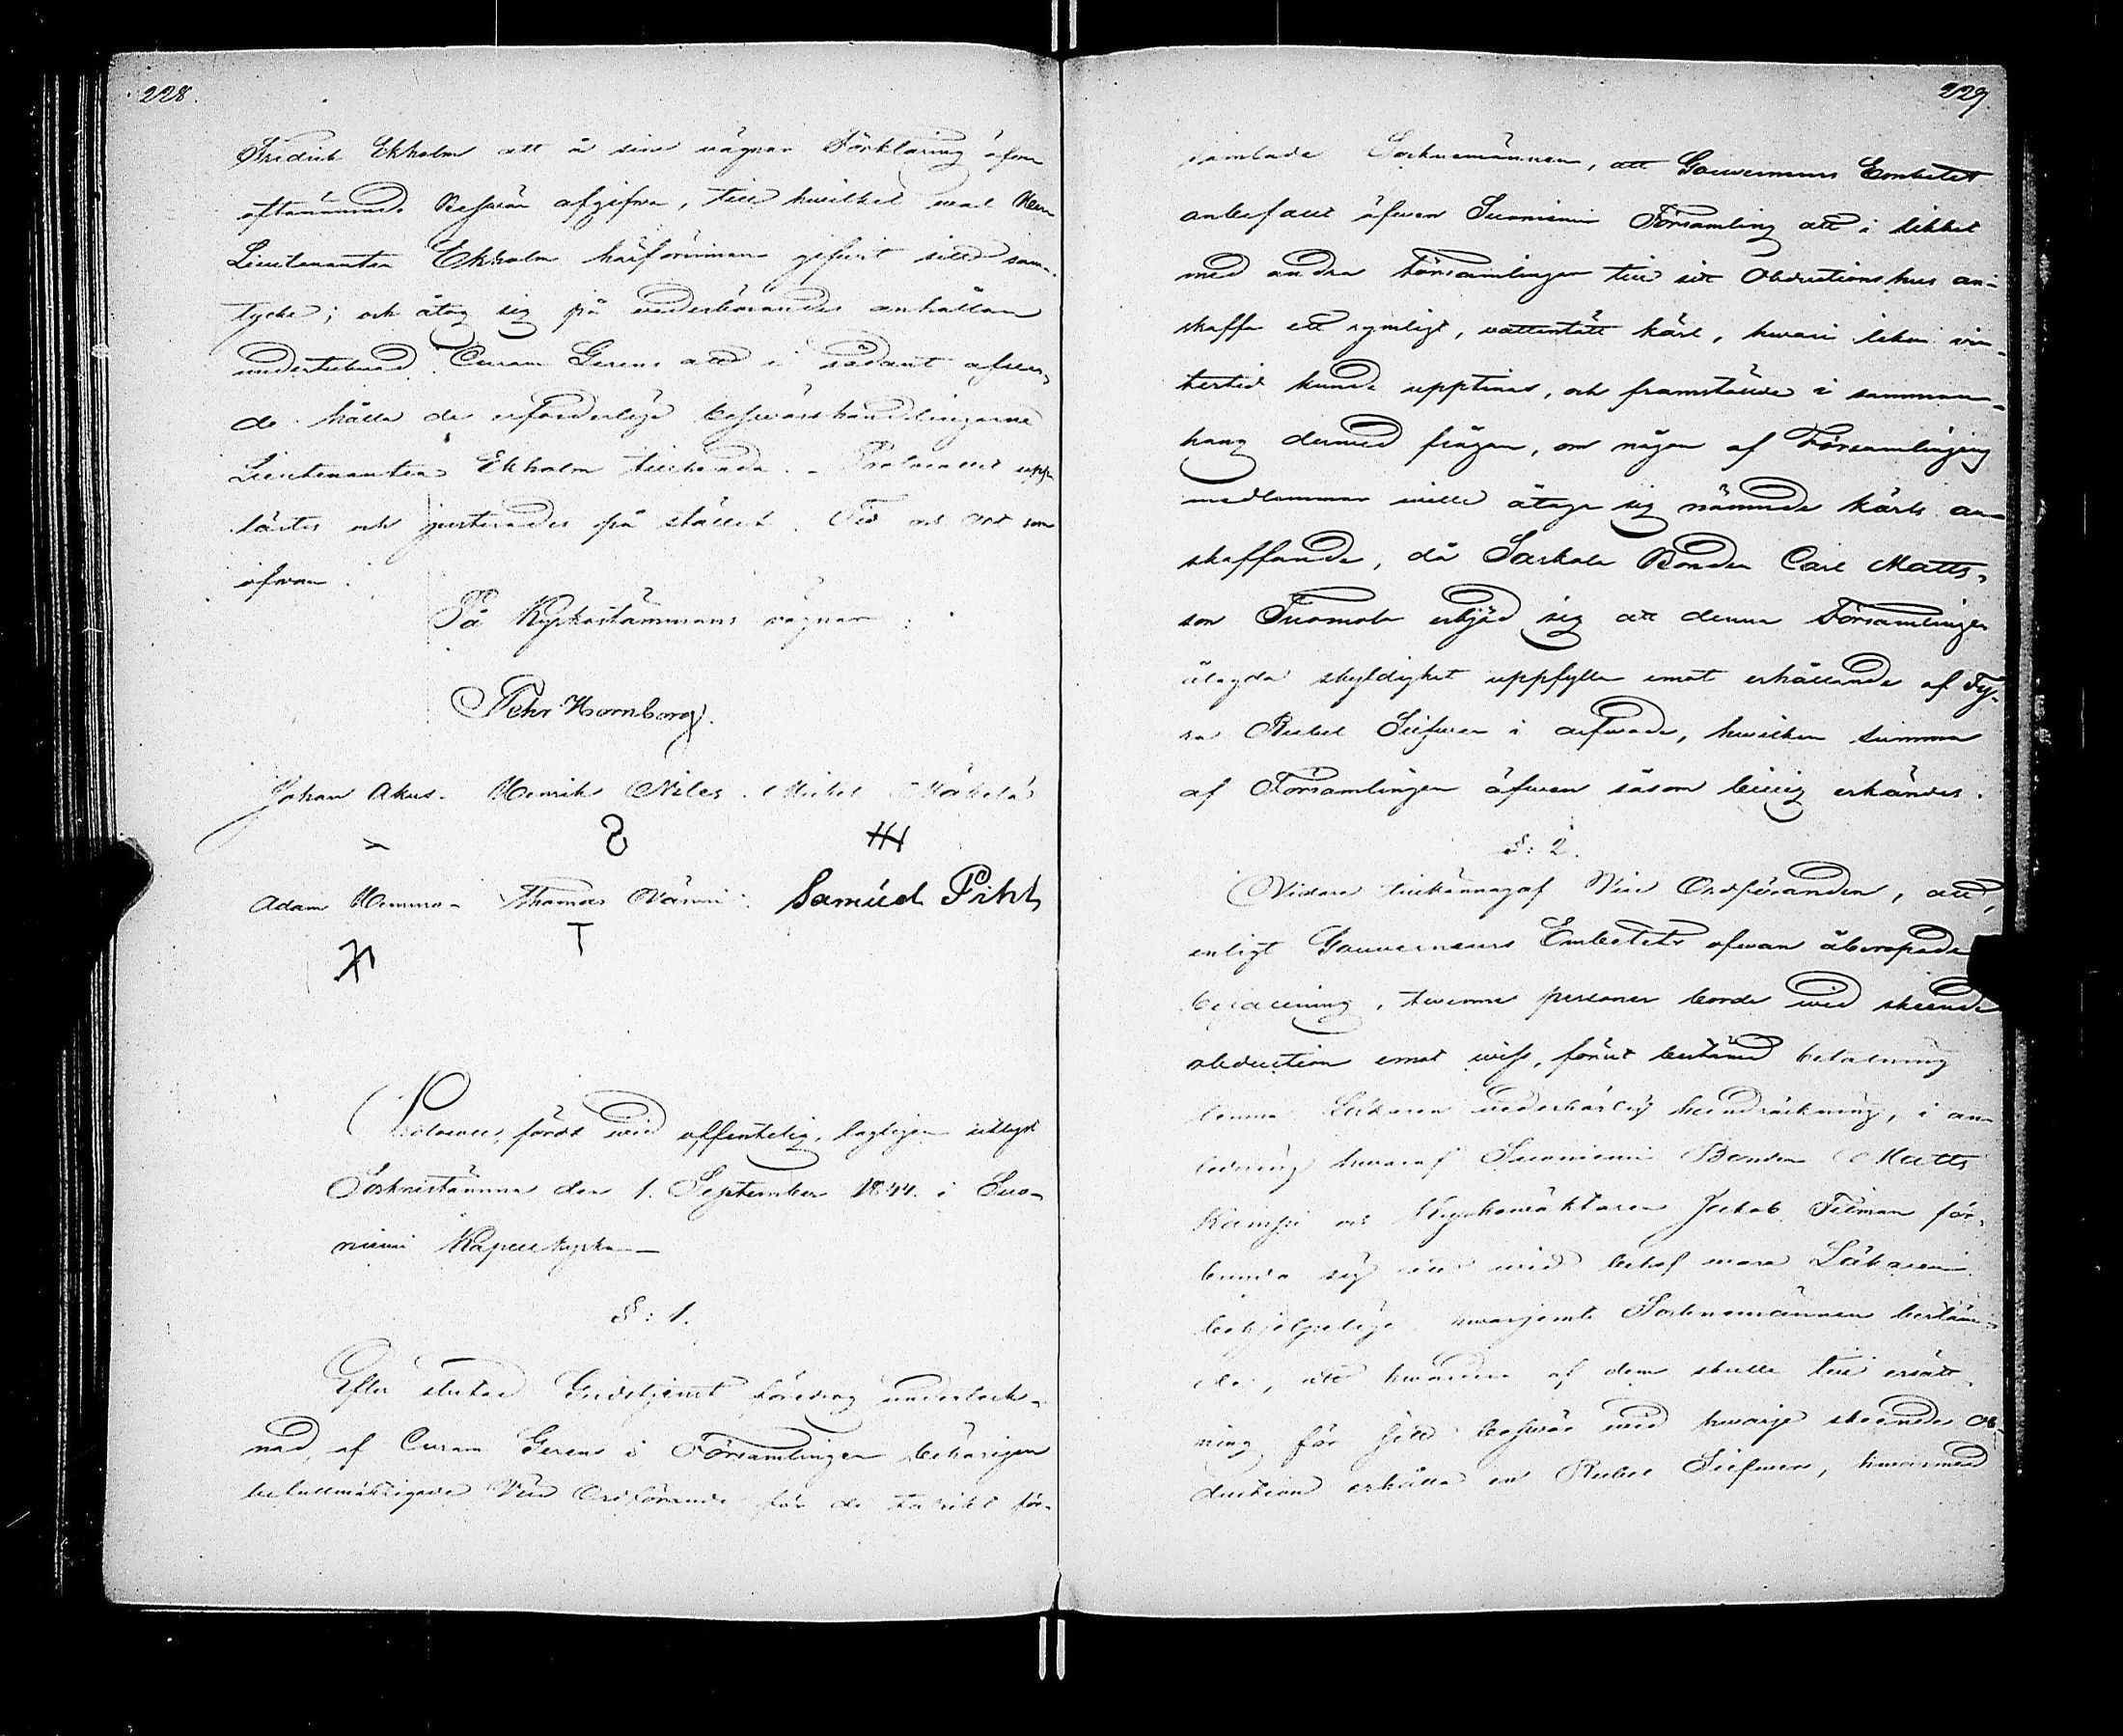 228.
Fredrik Ekholm att å sina vägnar Förklaring öfver
oftanämnde Besvär afgifva, till hvilket val Herr
Lieutenanten Ekholm härförinnan gifvit sitt sam-
tycke; och åtog sig på vederbörandes anhållan
undertecknad Curam Gerens att i sådant afseen-
de hålla de erforderliga besvärshandlingarne
Lieutenanten Ekholm tillhanda. – Protocollet upp-
lästes och justerades på stället. Tid och Ort som
ofvan.
På Kyrkostämmans vägnar:
Pehr Hornborg.
Johan Akus. Henrik Niles. Michel Mäkelä
Adam Hemmo. Thomas Värmi. Samuel Pihl
T
Protocoll, fördt wid offentelig, lagligen utlyst
Socknestämma den 1. September 1844. i Suo-
niemi Kapellkyrka. —
§: 1.
Efter slutad Gudstjenst föredrog underteck-
nad, af Curam Gerens i Församlingen behörigen
befullmäktigade Vice Ordförande för de talrikt för-
229.
samlade Socknemännen, att Gouverneurs Embetet
anbefallt äfven Suoniemi Församling att i likhet
med andra Församlingar till sitt Obductionshus an-
skaffa ett rymligt, vattentätt kärl, hwari liken vin-
tertid kunde upptinas, och framställde i samman-
hang dermed frågan, om någon af Församlingens
medlemmar wille åtaga sig nämnde kärls an-
skaffande, då Sarkola Bonden Carl Matts-
son Tuomola erbjöd sig att denna Församlingen
ålagda skyldighet uppfylla emot erhållande af Fy-
ra Rubel Silfwer i arfwode, hwilken summa
af Församlingen äfwen såsom billig erkändes.
§: 2.
Vidare tillkännagaf Vice Ordföranden, att,
enligt Gouverneurs Embetets ofwan åberopade
befallning, twenne personer borde wid skeende
obduction emot wiss, förut bestämd betalning
lemna Läkaren vederbörlig handräckning, i an-
ledning hwaraf Suoniemi Bonden Matts
Kämpi och Kyrkowäktaren Jakob Filman för-
bundo sig att wid behof wara Läkaren
behjelpelige hwarjemte Socknemännen bestäm-
de, att hwardera af dem skulle till ersätt-
ning för sitt beswär wid hwarje skeende ob-
duction erhålla en Rubel Silfwer, hwarmed